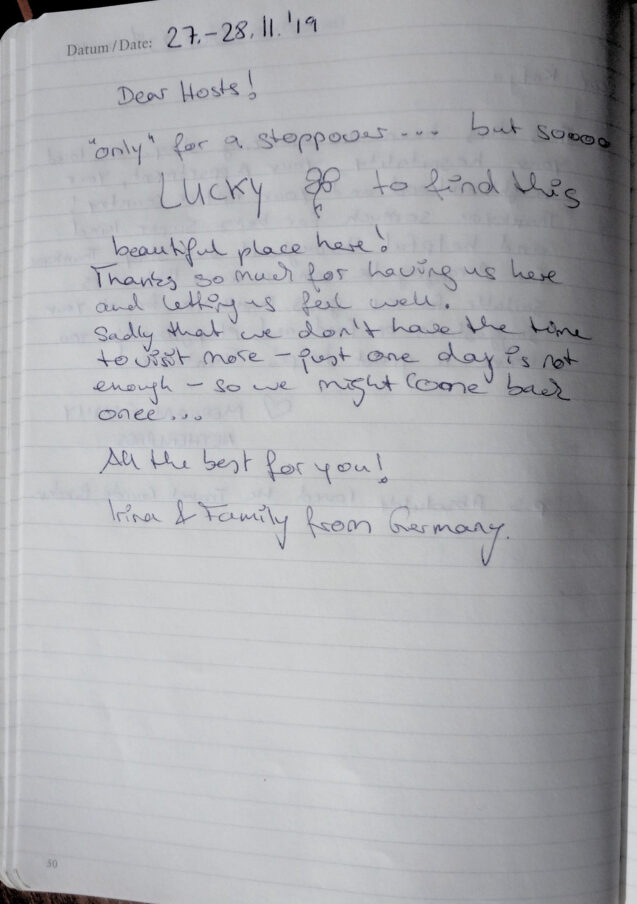 Datum / Date: 27.-28.11.'19
Dear Hosts!
"only" for a stoppover... but soooo
LUCKY to find this
beautiful place here!
Thanks so much for having us here
and letting us feel well.
Sadly that we don't have the time
to visit more - just one day is not
enough - so we might come back
once...
All the best for you!
Irina & Family from Germany.
50